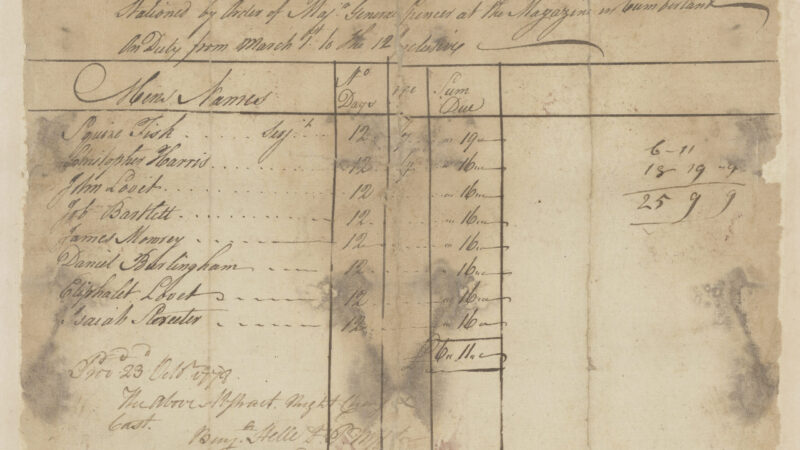 Stationed by Order of Maj.r General Spencer at the Magazine in Cumberland
On Duty from March 1st to the 12 Inclusive
Mens Names No Days Sum Due
Squire Fish Serj.t 12 19
Christopher Harris 12 16
John Lovet 12 16
Job Bartlett 12 16
James Mowrey 12 16
Daniel Burlingham 12 16
Eliphalet Lovet 12 16
Isaiah 12 16
6 11
6-11
18 19 9
25 9 9
23 Oct.r 1779
The Above Abstract Right
Cast.